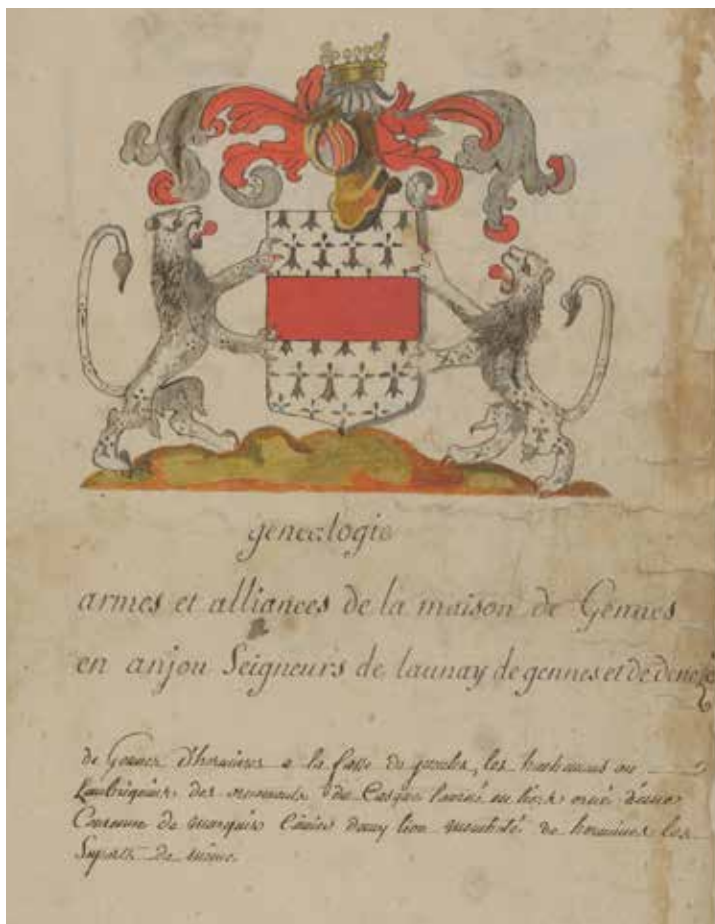 genealogie
armes et alliances de la maison de Gennes
en anjou Seigneurs de launay de gennes et de denezé
de Gennes d'hermines a la fasse de gueules, les hachemens ou
Lambrequins des ornements du Casque tourné orné d'une
Couronne de marquis lion de hermines les
Suports de même.